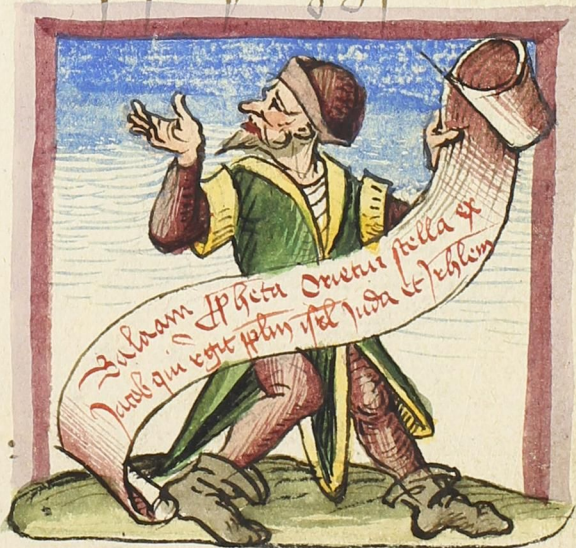 Balaam ꝓpheta Orietur stella ex
Jacob qui regit pplm isrl Juda et Jrhlem